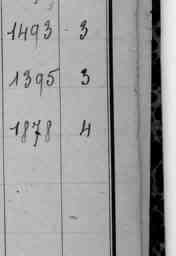 1493 3
1395 3
1878 4